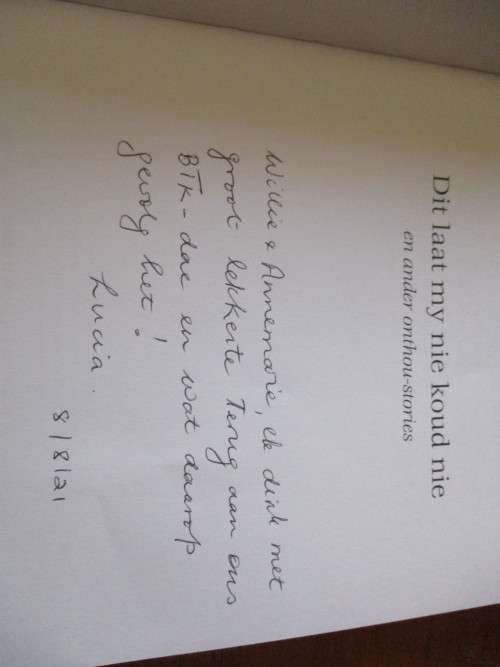 Dit laat my nie koud nie
en ander onthou-stories
Willie & Annemarie, ek dink met
groot lekkerte terug aan ons
BTK-dae en wat daarop
gevolg het!
Lucia.
8/8/21